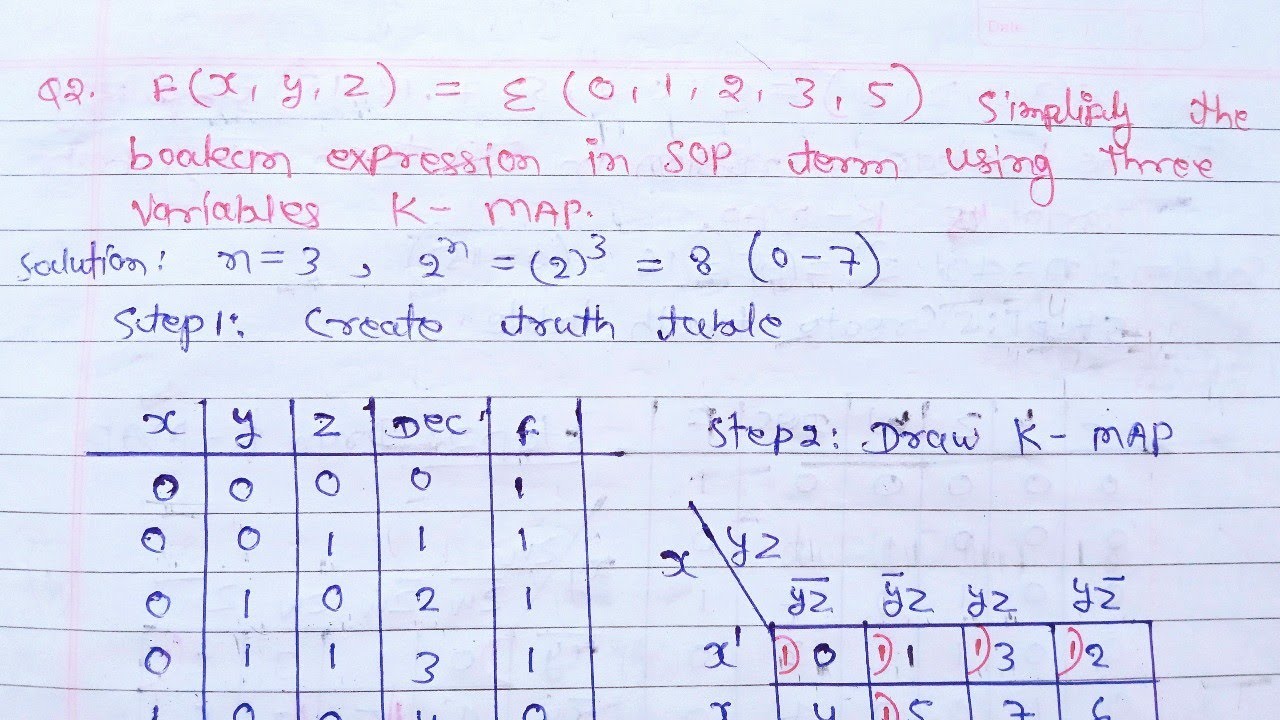 Q2. F(x, y, z) = Σ (0, 1, 2, 3, 5) Simplify the
boolean expression in SOP term using three
variables K- MAP.
Solution: n = 3 , 2ⁿ = (2)³ = 8 (0 - 7)
Step1: Create truth table
x y z Dec F
0 0 0 0 1
0 0 1 1 1
0 1 0 2 1
0 1 1 3 1
1 0 0 4 0
Step2: Draw K- MAP
x yz
y̅z̅ y̅z yz yz̅
x' 1 0 1 1 1 3 1 2
x 4 1 5 7 6